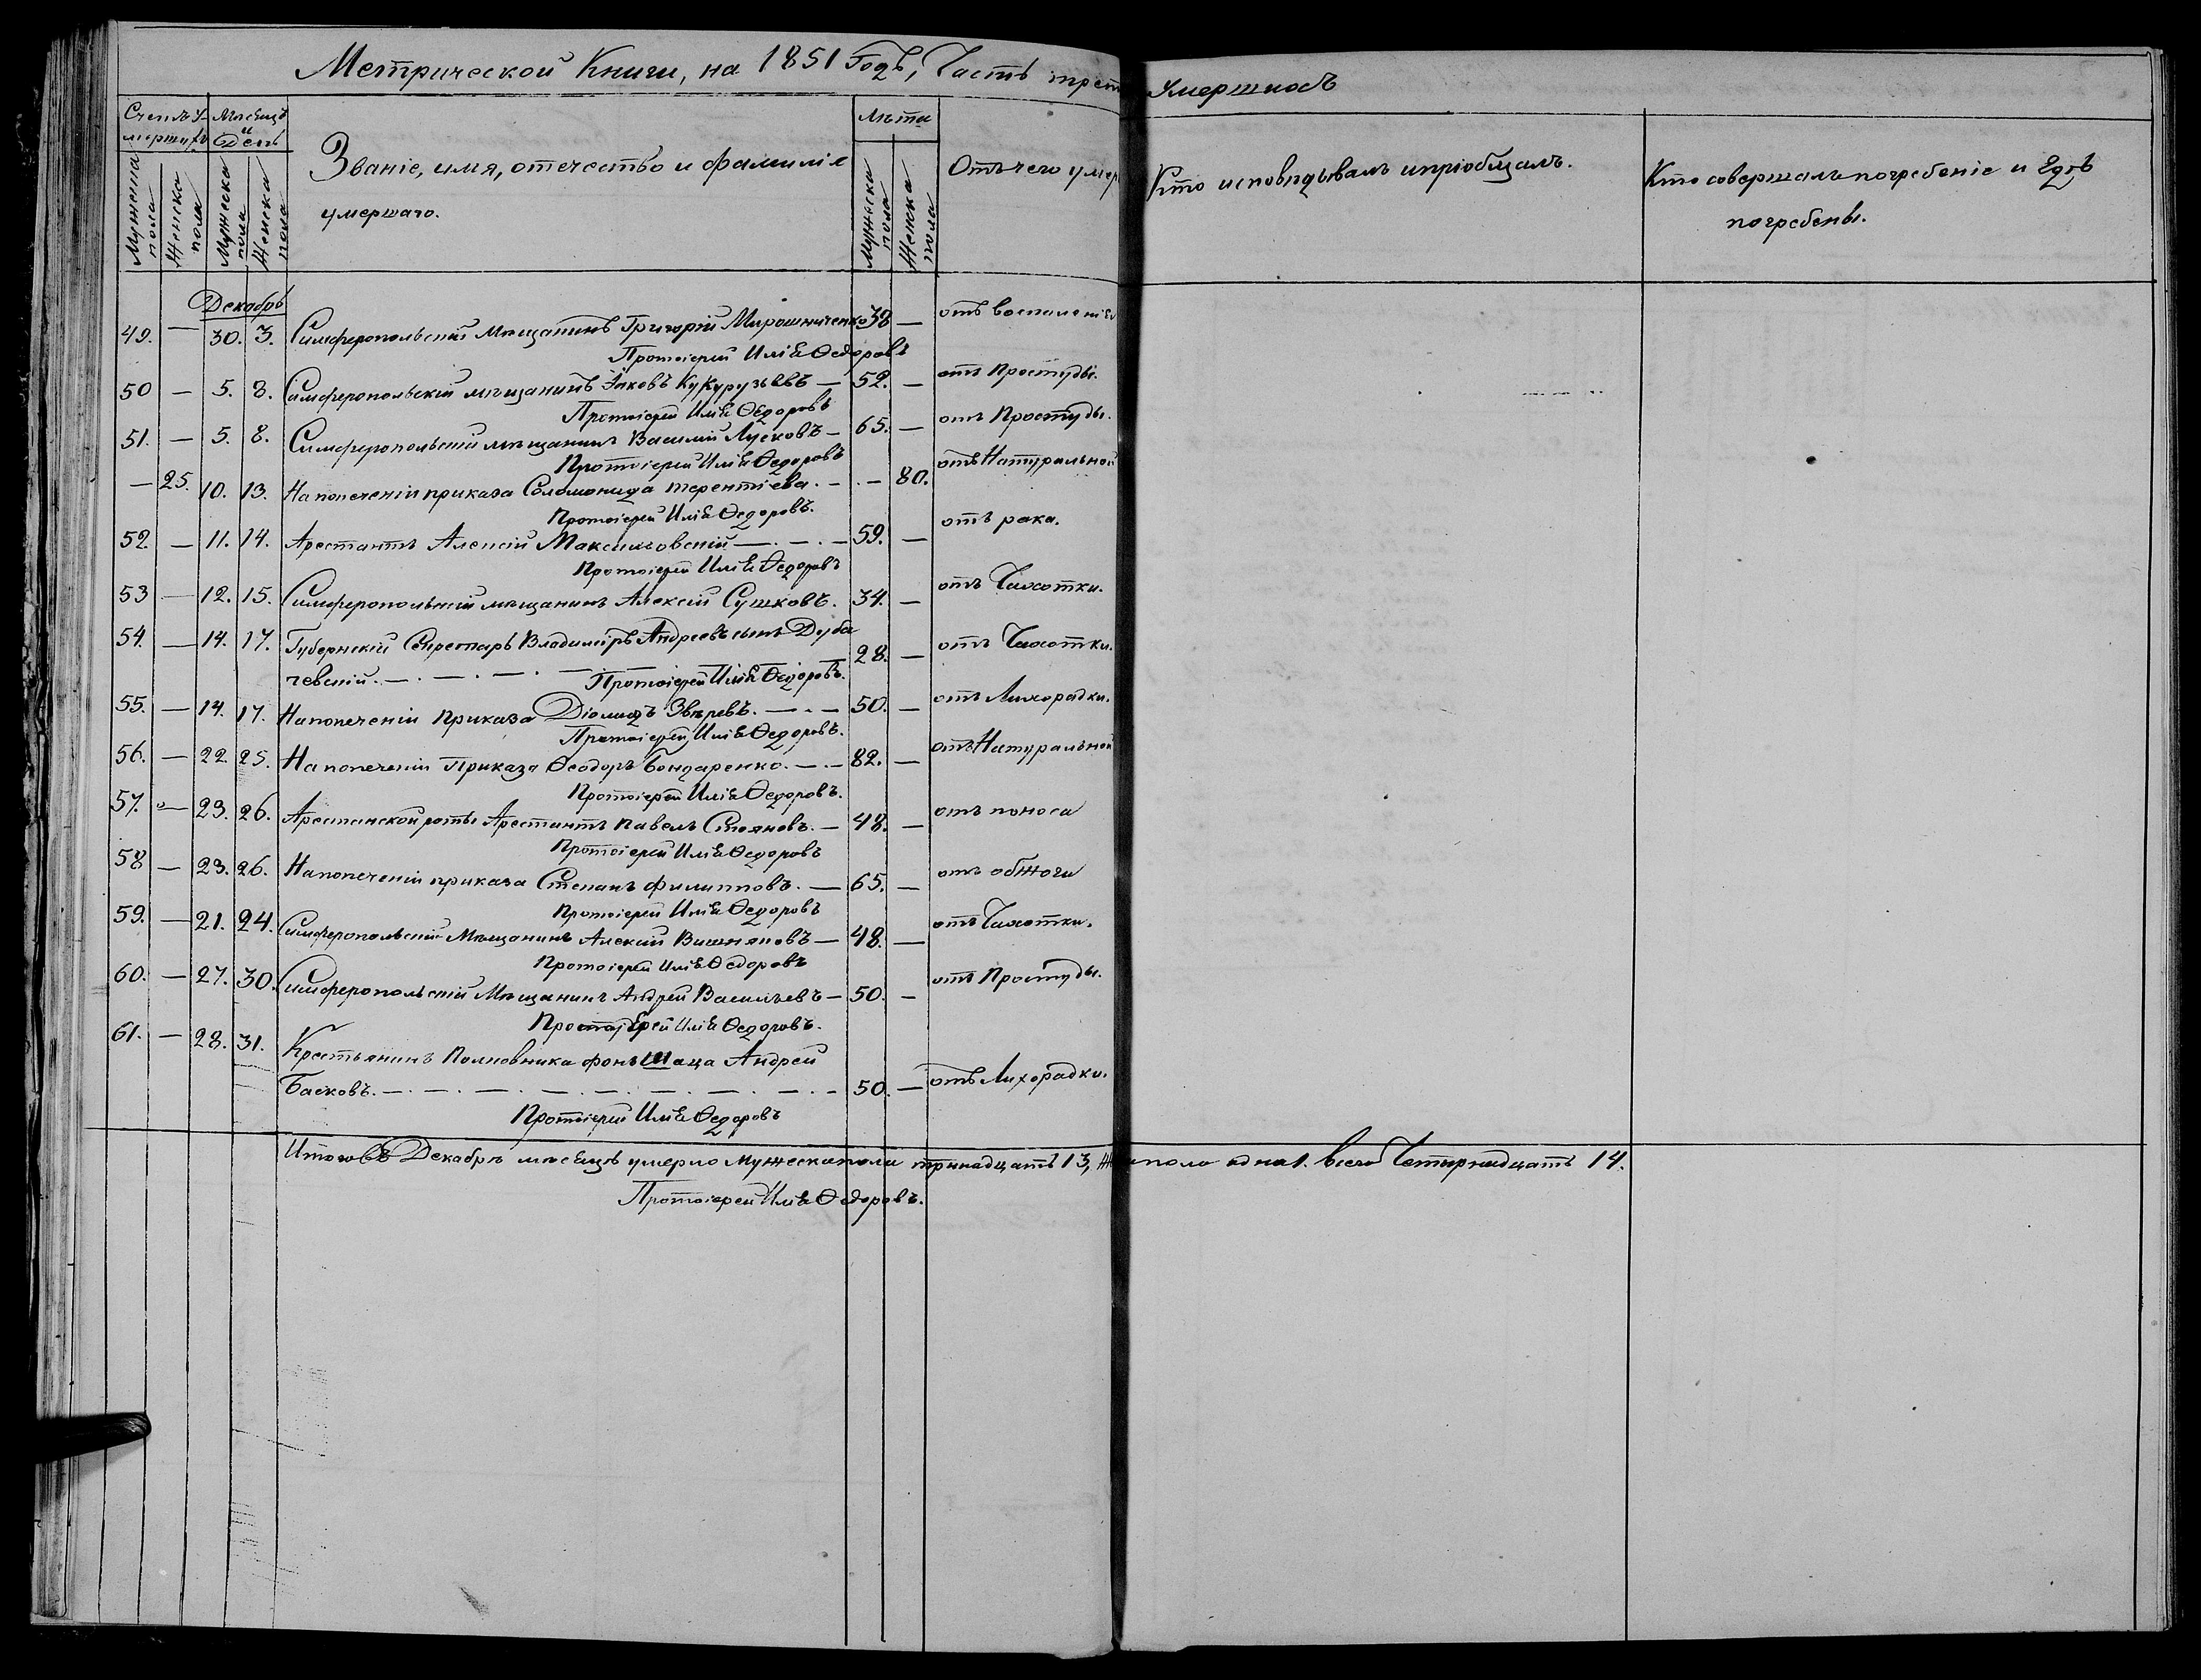 Метрической Книги, на 1851 Годъ, Часть трет умершихъ
Счетъ у-
мершихъ
Мѣсяцъ
и
День
Званіе, имя, отечество и фамилія
умершаго.
Лѣта
Отъ чего умер
Кто исповѣдывалъ и пріобщалъ.
Кто совершалъ погребеніе и гдѣ
погребены.
Мужеска пола
Женска пола
Мужеска пола
Женска пола
Мужеска пола
Женска пола
Декабрь
49. — 30. 3. Симферопольскій Мѣщанинъ Григорій Мирошниченко 38 — отъ воспаленія
Протоіерей Илія Ѳедоровъ
50 — 5. 8. Симферопольскій мѣщанинъ Іаковъ Кукурузъевъ — 52. — отъ Простуды.
Протоіерей Илія Ѳедоровъ
51. — 5. 8. Симферопольскій мѣщанинъ Василій Лусковъ — 65. — отъ Простуды.
Протоіерей Илія Ѳедоровъ
— 25. 10. 13. На попеченіи приказа Соломонида терентіева. — . — 80. отъ Натуральной
Протоіерей Илія Ѳедоровъ.
52. — 11. 14. Арестантъ Алексій Максимовскій — . — . — 59. — отъ рака.
Протоіерей Илія Ѳедоровъ
53 — 12. 15. Симферопольскій мѣщанинъ Алексій Сушковъ. 34. — отъ Чахотки.
54. — 14. 17. Губернскій Секретарь Владиміръ Андреевъ сынъ Дуба
чевскій. — . — . — . — 28. — отъ Чахотки.
Протоіерей Илія Ѳедоровъ.
55. — 14. 17. На попеченіи Приказа Діомидъ Звѣревъ. — . — 50. — отъ Лихорадки.
Протоіерей Илія Ѳедоровъ.
56. — 22. 25. На попеченіи Приказа Ѳеодоръ Бондаренко. — . — 82. — отъ Натуральной
Протоіерей Илія Ѳедоровъ.
57. — 23. 26. Арестанской роты Арестантъ Павелъ Стояновъ. — 48. — отъ поноса
Протоіерей Илія Ѳедоровъ
58 — 23. 26. На попеченіи приказа Степанъ Филипповъ. — 65. — отъ обжоги
Протоіерей Илія Ѳедоровъ
59. — 21. 24. Симферопольскій Мѣщанинъ Алексій Вишняковъ — 48. — отъ Чахотки.
Протоіерей Илія Ѳедоровъ
60. — 27. 30. Симферопольскій Мѣщанинъ Андрей Васильевъ — 50. — отъ Простуды.
Протоіерей Илія Ѳедоровъ.
61. — 28. 31. Крестьянинъ Полковника фонъ Шаца Андрей
Басковъ. — . — . — . — . — . — . — . — 50. — отъ Лихорадки.
Протоіерей Илія Ѳедоровъ
Итого въ Декабрѣ мѣсяцѣ умерло Мужеска пола тринадцать 13, Же пола одна 1. всего Четырнадцать 14.
Протоіерей Илія Ѳедоровъ.